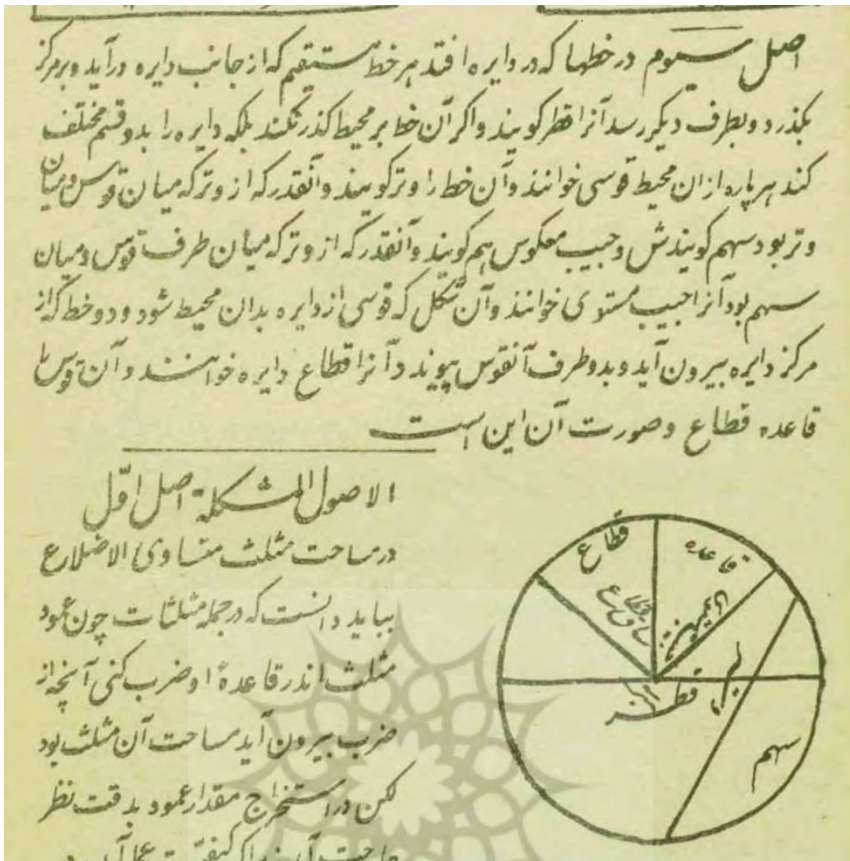 اصل سیوم در خطها که در دایره افتد هر خط مستقیم که از جانب دایره درآید و بر مرکز
بکذرد و بطرف دیکر رسد آنرا قطر کویند و اکر آن خط بر محیط کذر نکند بلکه دایره را بدو قسم مختلف
کند هر پاره از ان محیط قوسی خوانند و آن خط را وتر کویند و آنقدر که از وتر که میان قوس و میان
وتر بود سهم کویندش و جیب معکوس هم کویند و آنقدر که از وتر که میان طرف قوس و میان
سهم بود آنرا جیب مستوی خوانند و آن شکل که قوسی از دایره بدان محیط شود و دو خط که از
مرکز دایره بیرون آید و بدو طرف آنقوس پیوندد آنرا قطاع دایره خوانند و آن قوس را
قاعده قطاع و صورت آن این است
الاصول المشکلة اصل اوّل
در مساحت مثلث متساوی الاضلاع
بباید دانست که در جمله مثلثات چون عمود
مثلث اندر قاعدهٔ او ضرب کنی آنچه از
ضرب بیرون آید مساحت آن مثلث بود
لکن در استخراج مقدار عمود بدقت نظر
حاجت
قطاع
قاعده
قطر
وتر
سهم